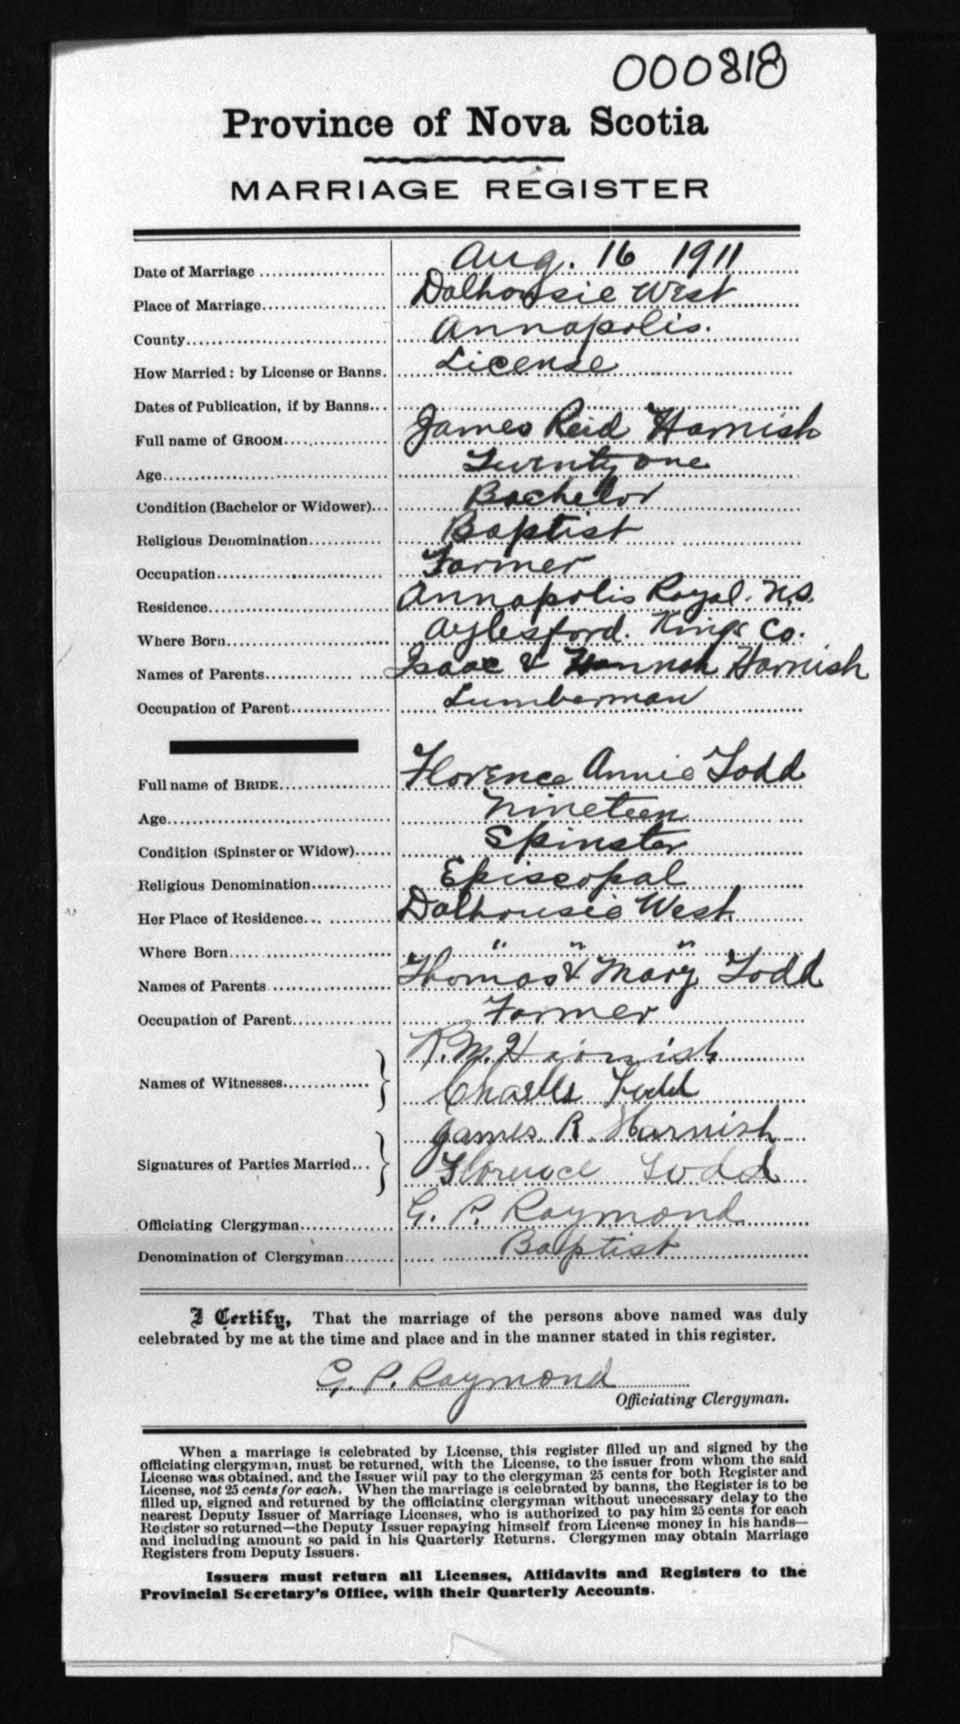 000818
Province of Nova Scotia
MARRIAGE REGISTER
Date of Marriage Aug. 16 1911
Place of Marriage Dalhousie West
County Annapolis.
How Married: by License or Banns. License
Dates of Publication, if by Banns
Full name of GROOM James Reid Harnish
Age Twenty one
Condition (Bachelor or Widower) Bachelor
Religious Denomination Baptist
Occupation Farmer
Residence Annapolis Royal. N.S.
Where Born Aylesford. Kings Co.
Names of Parents Isaac & Hannah Harnish
Occupation of Parent Lumberman
Full name of BRIDE Florence Annie Todd
Age Nineteen
Condition (Spinster or Widow) Spinster
Religious Denomination Episcopal
Her Place of Residence Dalhousie West
Where Born " " "
Names of Parents Thomas & Mary Todd
Occupation of Parent Farmer
Names of Witnesses R. M. Harnish
Charlie Todd
Signatures of Parties Married James R. Harnish
Florence Todd
Officiating Clergyman G. P. Raymond
Denomination of Clergyman Baptist
I Certify, That the marriage of the persons above named was duly
celebrated by me at the time and place and in the manner stated in this register.
G. P. Raymond
Officiating Clergyman.
When a marriage is celebrated by License, this register filled up and signed by the
officiating clergyman, must be returned, with the License, to the issuer from whom the said
License was obtained, and the Issuer will pay to the clergyman 25 cents for both Register and
License, not 25 cents for each. When the marriage is celebrated by banns, the Register is to be
filled up, signed and returned by the officiating clergyman without unecessary delay to the
nearest Deputy Issuer of Marriage Licenses, who is authorized to pay him 25 cents for each
Register so returned—the Deputy Issuer repaying himself from License money in his hands—
and including amount so paid in his Quarterly Returns. Clergymen may obtain Marriage
Registers from Deputy Issuers.
Issuers must return all Licenses, Affidavits and Registers to the
Provincial Secretary's Office, with their Quarterly Accounts.